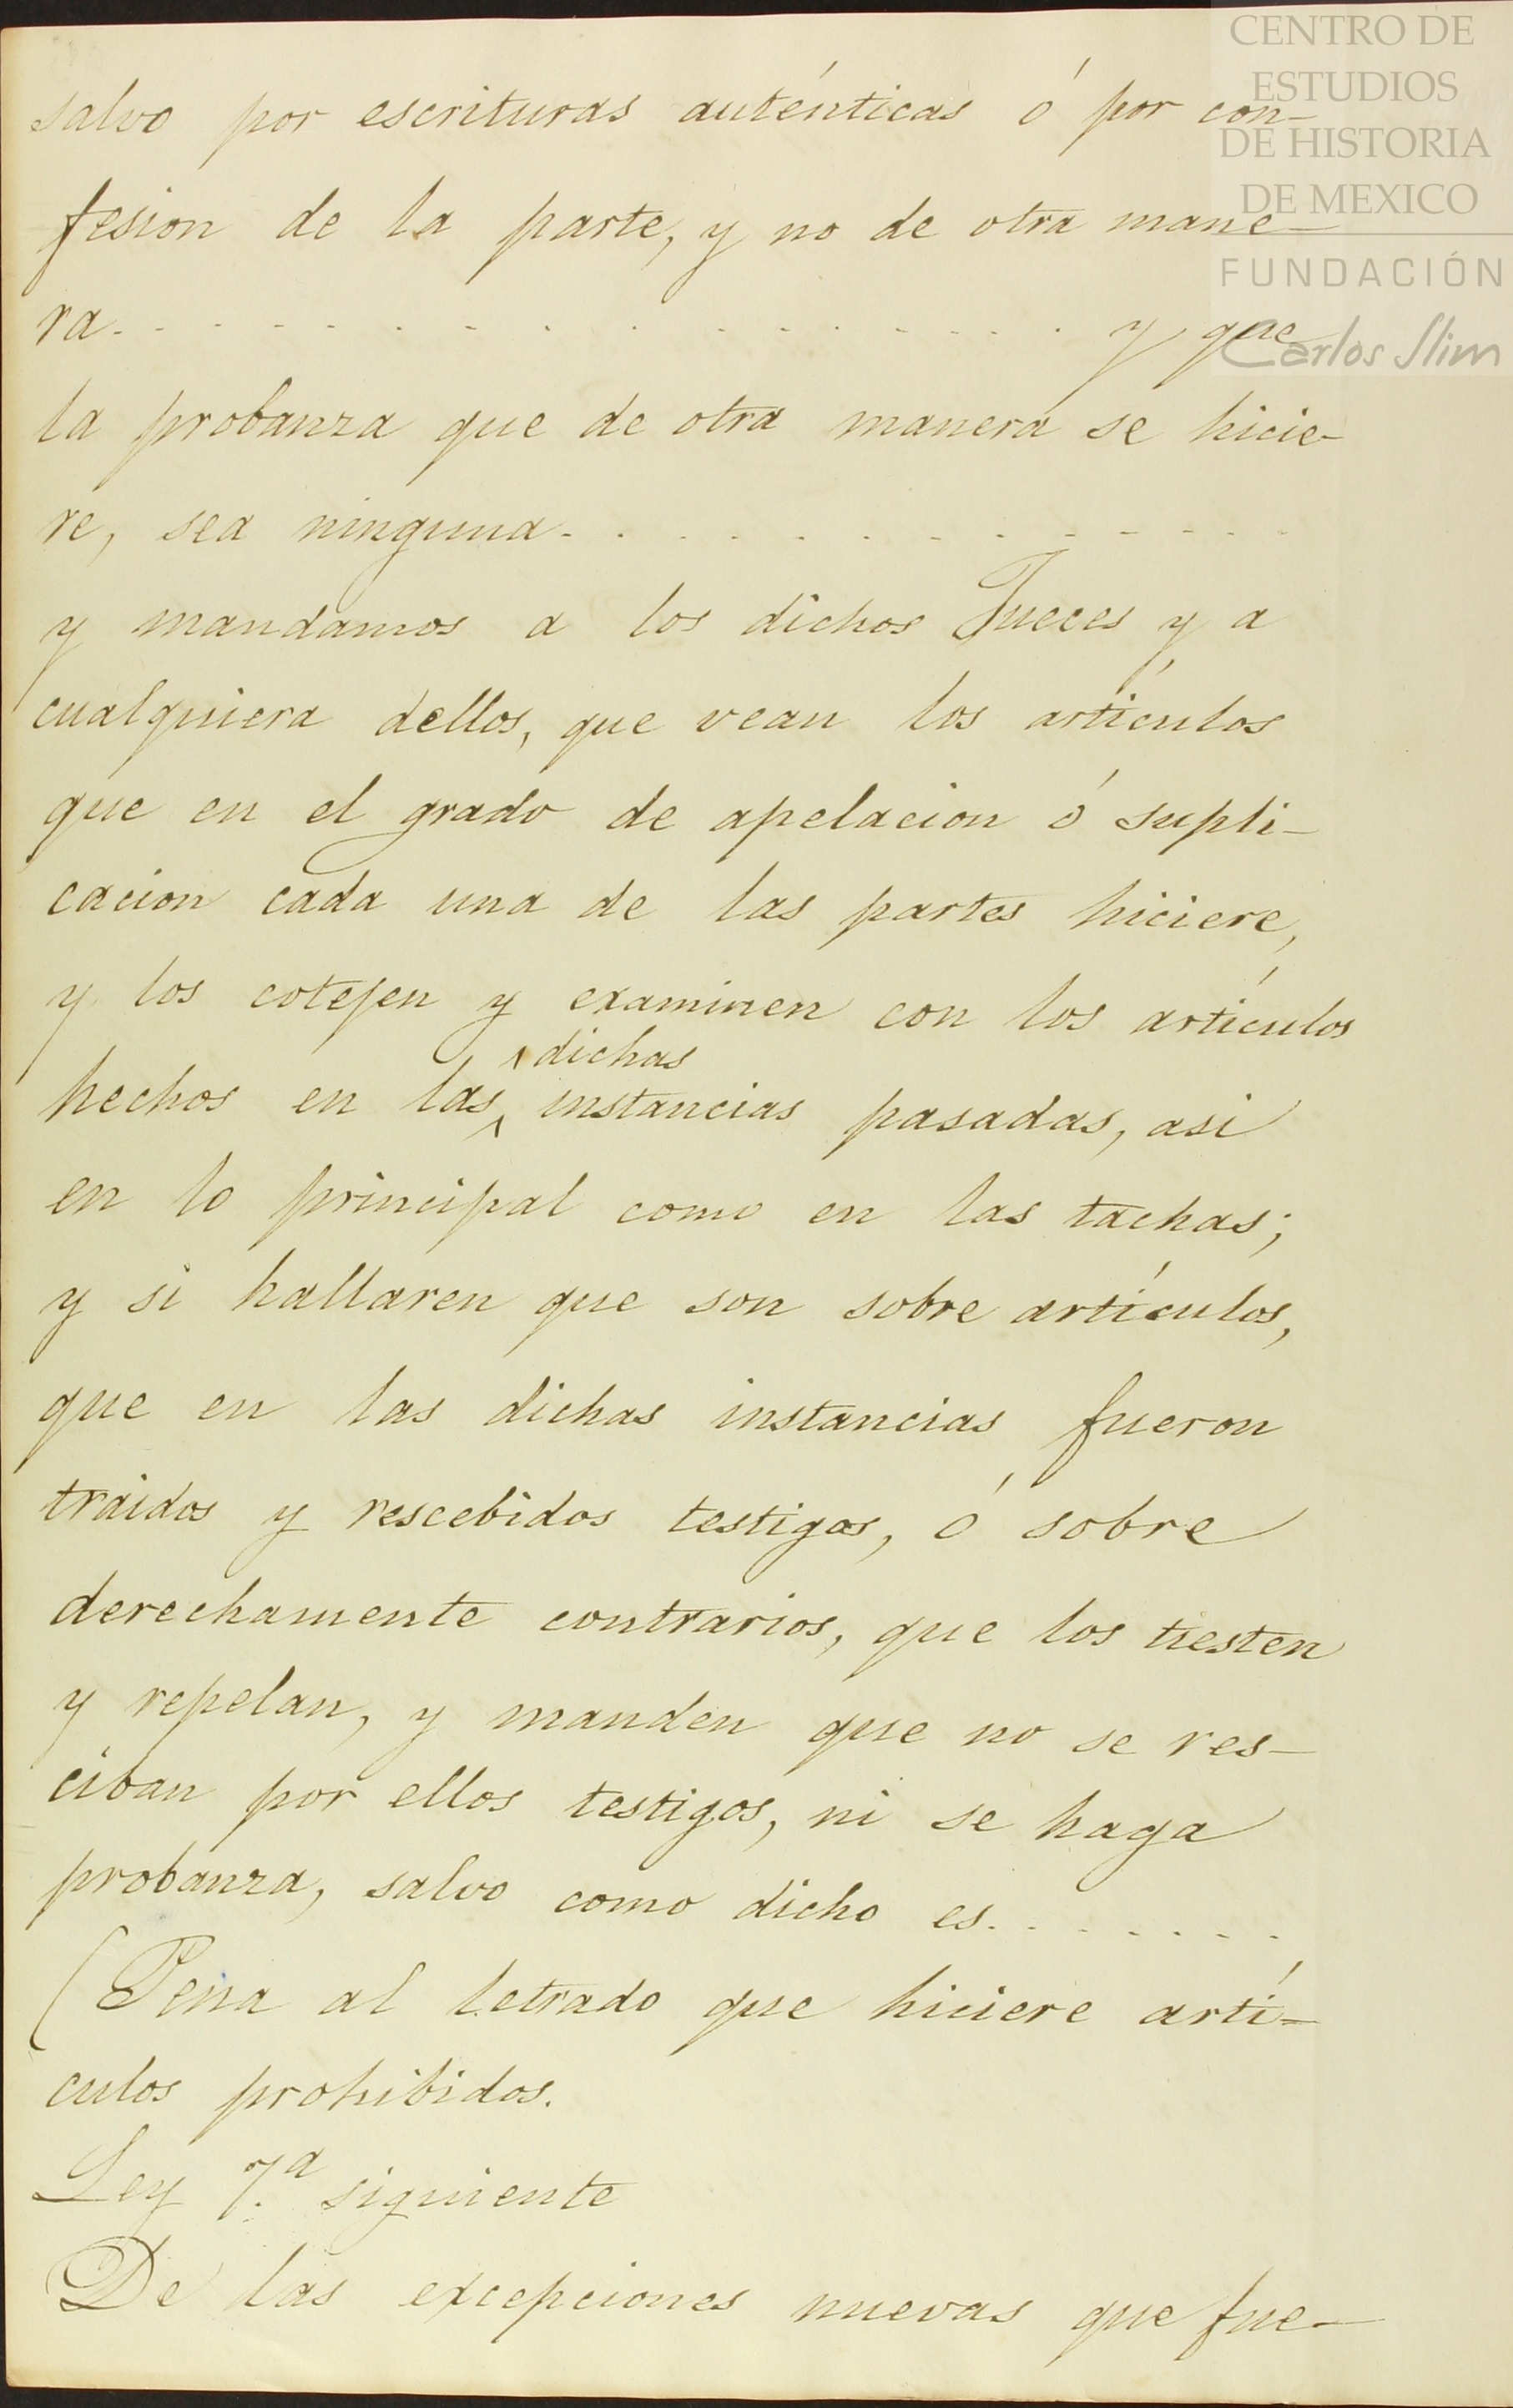 CENTRO DE
ESTUDIOS
DE HISTORIA
DE MEXICO
FUNDACIÓN
Carlos Slim
salvo por escrituras auténticas ó por con-
fesion de la parte, y no de otra mane-
ra- . . . . . . . . . . . . . . . . y que
la probanza que de otra manera se hicie-
re, sea ninguna- . . . . . . . . . . .
y mandamos a los dichos Jueces y a
cualquiera dellos, que vean los artículos
que en el grado de apelacion ó supli-
cacion cada una de las partes hiciere,
y los cotejen y examinen con los artículos
dichas
hechos en las instancias pasadas, asi
en lo principal como en las tachas;
y si hallaren que son sobre artículos,
que en las dichas instancias fueron
traidos y rescebidos testigos, ó sobre
derechamente contrarios, que los tiesten
y repelan, y manden que no se res-
ciban por ellos testigos, ni se haga
probanza, salvo como dicho es. . . . . . .
(Pena al letrado que hiciere artí-
culos prohibidos.
Ley 7.ª siguiente
De las excepciones nuevas que fue-